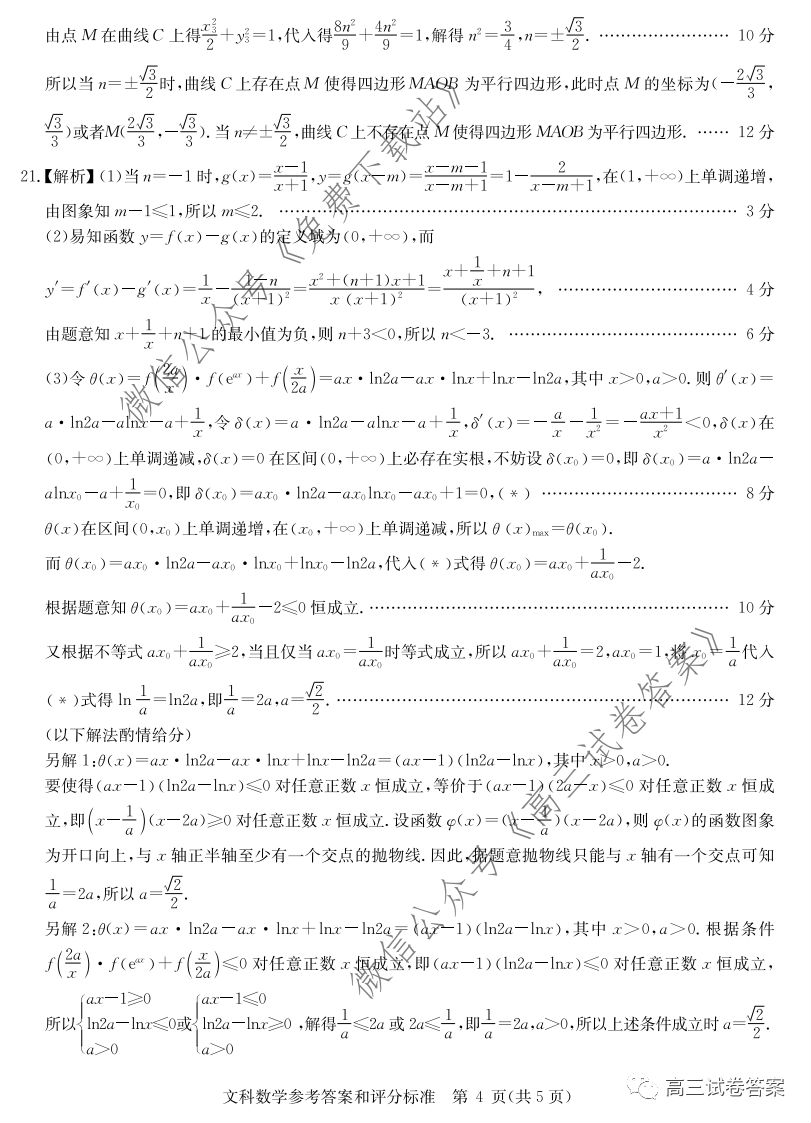 由点 M 在曲线 C 上得x₃²/2+y₃²=1,代入得8n²/9+4n²/9=1,解得 n²=3/4,n=±√3/2. …………………… 10 分
所以当 n=±√3/2时,曲线 C 上存在点 M 使得四边形 MAOB 为平行四边形,此时点 M 的坐标为(-2√3/3,
√3/3)或者M(2√3/3,-√3/3).当 n≠±√3/2,曲线 C 上不存在点 M 使得四边形 MAOB 为平行四边形. …… 12 分
21.【解析】(1)当 n=-1 时,g(x)=(x-1)/(x+1),y=g(x-m)=(x-m-1)/(x-m+1)=1-2/(x-m+1),在(1,+∞)上单调递增,
由图象知 m-1≤1,所以 m≤2. …………………… 3 分
(2)易知函数 y=f(x)-g(x)的定义域为(0,+∞),而
y′=f′(x)-g′(x)=1/x-(1-n)/(x+1)²=(x²+(n+1)x+1)/(x(x+1)²)=(x+1/x+n+1)/(x+1)², …………………… 4 分
由题意知 x+1/x+n+1 的最小值为负,则 n+3<0,所以 n<-3. …………………… 6 分
(3)令 θ(x)=f(2a/x)·f(eᵃˣ)+f(x/2a)=ax·ln2a-ax·lnx+lnx-ln2a,其中 x>0,a>0.则 θ′(x)=
a·ln2a-alnx-a+1/x,令 δ(x)=a·ln2a-alnx-a+1/x,δ′(x)=-a/x-1/x²=-(ax+1)/x²<0,δ(x)在
(0,+∞)上单调递减,δ(x)=0 在区间(0,+∞)上必存在实根,不妨设 δ(x₀)=0,即 δ(x₀)=a·ln2a-
alnx₀-a+1/x₀=0,即 δ(x₀)=ax₀·ln2a-ax₀lnx₀-ax₀+1=0,(*) …………………… 8 分
θ(x)在区间(0,x₀)上单调递增,在(x₀,+∞)上单调递减,所以 θ(x)max=θ(x₀).
而 θ(x₀)=ax₀·ln2a-ax₀·lnx₀+lnx₀-ln2a,代入(*)式得 θ(x₀)=ax₀+1/ax₀-2.
根据题意知 θ(x₀)=ax₀+1/ax₀-2≤0 恒成立. …………………… 10 分
又根据不等式 ax₀+1/ax₀≥2,当且仅当 ax₀=1/ax₀时等式成立,所以 ax₀+1/ax₀=2,ax₀=1,将 x₀=1/a代入
(*)式得 ln 1/a=ln2a,即1/a=2a,a=√2/2. …………………… 12 分
(以下解法酌情给分)
另解 1:θ(x)=ax·ln2a-ax·lnx+lnx-ln2a=(ax-1)(ln2a-lnx),其中 x>0,a>0.
要使得(ax-1)(ln2a-lnx)≤0 对任意正数 x 恒成立,等价于(ax-1)(2a-x)≤0 对任意正数 x 恒成
立,即(x-1/a)(x-2a)≥0 对任意正数 x 恒成立.设函数 φ(x)=(x-1/a)(x-2a),则 φ(x)的函数图象
为开口向上,与 x 轴正半轴至少有一个交点的抛物线.因此,据题意抛物线只能与 x 轴有一个交点可知
1/a=2a,所以 a=√2/2.
另解 2:θ(x)=ax·ln2a-ax·lnx+lnx-ln2a=(ax-1)(ln2a-lnx),其中 x>0,a>0.根据条件
f(2a/x)·f(eᵃˣ)+f(x/2a)≤0 对任意正数 x 恒成立,即(ax-1)(ln2a-lnx)≤0 对任意正数 x 恒成立,
所以{ax-1≥0 ln2a-lnx≤0 a>0 或{ax-1≤0 ln2a-lnx≥0 a>0,解得1/a≤2a 或 2a≤1/a,即1/a=2a,a>0,所以上述条件成立时 a=√2/2.
文科数学参考答案和评分标准 第 4 页(共 5 页)
高三试卷答案
微信公众号《免费下载站》
微信公众号《高三试卷答案》